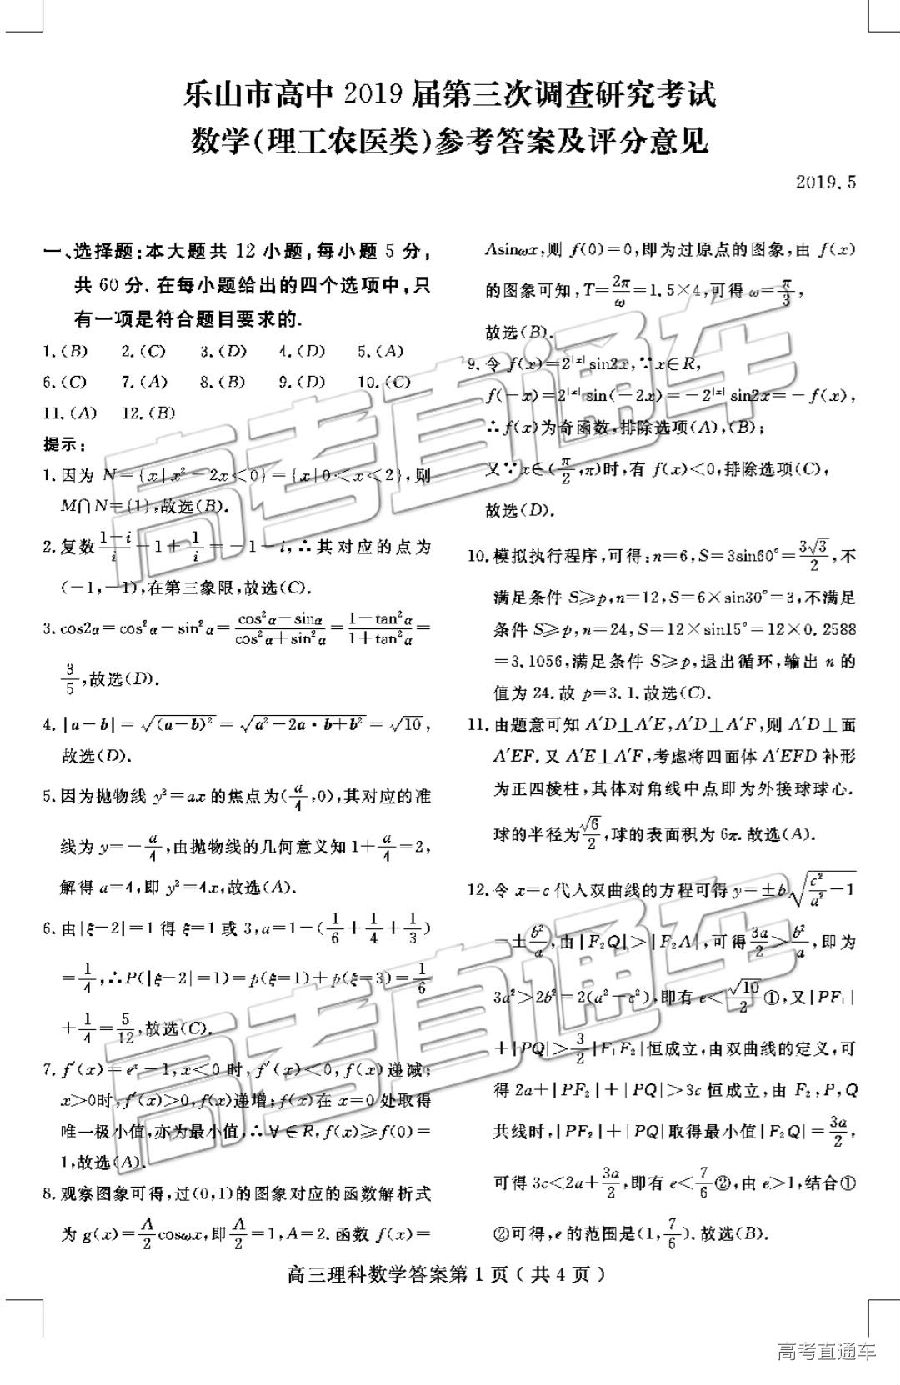 乐山市高中 2019 届第三次调查研究考试
数学(理工农医类)参考答案及评分意见
2019.5
一、选择题:本大题共 12 小题,每小题 5 分,
共 60 分.在每小题给出的四个选项中,只
有一项是符合题目要求的.
1.(B) 2.(C) 3.(D) 4.(D) 5.(A)
6.(C) 7.(A) 8.(B) 9.(D) 10.(C)
11.(A) 12.(B)
提示:
1.因为 N={x|x²-2x<0}={x|0<x<2},则
M∩N={1},故选(B).
2.复数 (1-i)/i=-1+1/i=-1-i,∴其对应的点为
(-1,-1),在第三象限,故选(C).
3.cos2α=cos²α-sin²α=(cos²α-sinα)/(cos²α+sin²α)=(1-tan²α)/(1+tan²α)=
3/5,故选(D).
4.|a-b|=√(a-b)²=√(a²-2a·b+b²)=√10,
故选(D).
5.因为抛物线 y²=ax 的焦点为(a/4,0),其对应的准
线为 y=-a/4,由抛物线的几何意义知 1+a/4=2,
解得 a=4,即 y²=4x,故选(A).
6.由|ξ-2|=1 得 ξ=1 或 3,a=1-(1/6+1/4+1/3)
=1/4,∴P(|ξ-2|=1)=p(ξ=1)+p(ξ=3)=1/6
+1/4=5/12,故选(C).
7.f′(x)=eˣ-1,x<0 时,f′(x)<0,f(x)递减;
x>0时,f′(x)>0,f(x)递增;f(x)在 x=0 处取得
唯一极小值,亦为最小值,∴∀∈R,f(x)≥f(0)=
1,故选(A).
8.观察图象可得,过(0,1)的图象对应的函数解析式
为 g(x)=A/2cosωx,即A/2=1,A=2.函数 f(x)=
Asinωx,则 f(0)=0,即为过原点的图象,由 f(x)
的图象可知,T=2π/ω=1.5×4,可得 ω=π/3,
故选(B).
9.令 f(x)=2^|x|sin2x,∵x∈R,
f(-x)=2^|x|sin(-2x)=-2^|x|sin2x=-f(x),
∴f(x)为奇函数,排除选项(A),(B);
又∵x∈(π/2,π)时,有 f(x)<0,排除选项(C),
故选(D).
10.模拟执行程序,可得:n=6,S=3sin60°=3√3/2,不
满足条件 S≥p,n=12,S=6×sin30°=3,不满足
条件 S≥p,n=24,S=12×sin15°=12×0.2588
=3.1056,满足条件 S≥p,退出循环,输出 n 的
值为 24.故 p=3.1.故选(C).
11.由题意可知 A′D⊥A′E,A′D⊥A′F,则 A′D⊥面
A′EF.又 A′E⊥A′F,考虑将四面体 A′EFD 补形
为正四棱柱,其体对角线中点即为外接球球心.
球的半径为√6/2,球的表面积为 6π.故选(A).
12.令 x=c 代入双曲线的方程可得 y=±b√(c²/a²-1)
=±b²/a,由|F₂Q|>|F₂A|,可得3a/2>b²/a,即为
3a²>2b²=2(a²-c²),即有 e<√10/2①,又|PF₁|
+|PQ|>3/2|F₁F₂|恒成立,由双曲线的定义,可
得 2a+|PF₂|+|PQ|>3c 恒成立,由 F₂,P,Q
共线时,|PF₂|+|PQ|取得最小值|F₂Q|=3a/2,
可得 3c<2a+3a/2,即有 e<7/6②,由 e>1,结合①
②可得,e 的范围是(1,7/6).故选(B).
高三理科数学答案第 1 页(共 4 页)
高考直通车
高考直通车
高考直通车